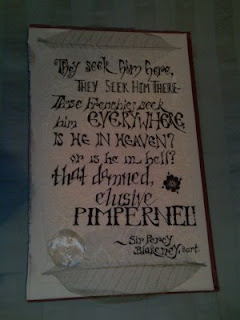 They seek him here,
THEY SEEK HIM THERE-
Those Frenchies seek
him EVERYWHERE
IS HE IN HEAVEN?
or is he in hell?
that damned,
elusive
PIMPERNEL!
~Sir Percy
Blakeney, Bart.